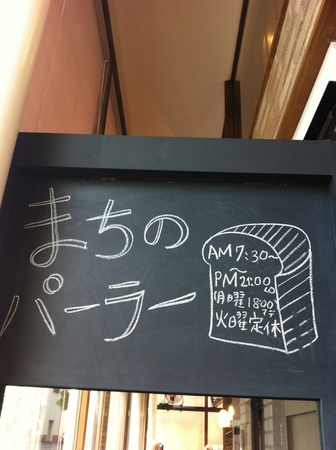 まちの
パーラー
AM7:30〜
〜
PM21:00 LO
月曜18:00マデ
火曜定休